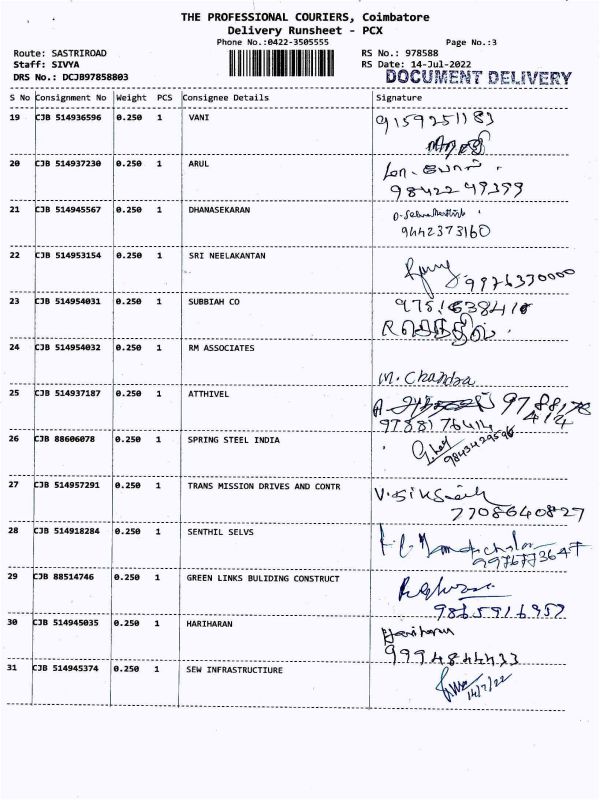 THE PROFESSIONAL COURIERS, Coimbatore
Delivery Runsheet - PCX
Phone No.:0422-3505555 Page No.:3
Route: SASTRIROAD RS No.: 978588
Staff: SIVYA RS Date: 14-Jul-2022
DRS No.: DCJB97858803 DOCUMENT DELIVERY
S No Consignment No Weight PCS Consignee Details Signature
19 CJB 514936596 0.250 1 VANI 9159251183
20 CJB 514937230 0.250 1 ARUL
98422 49399
21 CJB 514945567 0.250 1 DHANASEKARAN
9442373160
22 CJB 514953154 0.250 1 SRI NEELAKANTAN
9976330000
23 CJB 514954031 0.250 1 SUBBIAH CO
24 CJB 514954032 0.250 1 RM ASSOCIATES
M. Chandra
25 CJB 514937187 0.250 1 ATTHIVEL
9788176414
26 CJB 88606078 0.250 1 SPRING STEEL INDIA
27 CJB 514957291 0.250 1 TRANS MISSION DRIVES AND CONTR
7708640827
28 CJB 514918284 0.250 1 SENTHIL SELVS
29 CJB 88514746 0.250 1 GREEN LINKS BULIDING CONSTRUCT
9865916957
30 CJB 514945035 0.250 1 HARIHARAN Hariharan
9994844433
31 CJB 514945374 0.250 1 SEW INFRASTRUCTIURE
14/7/22